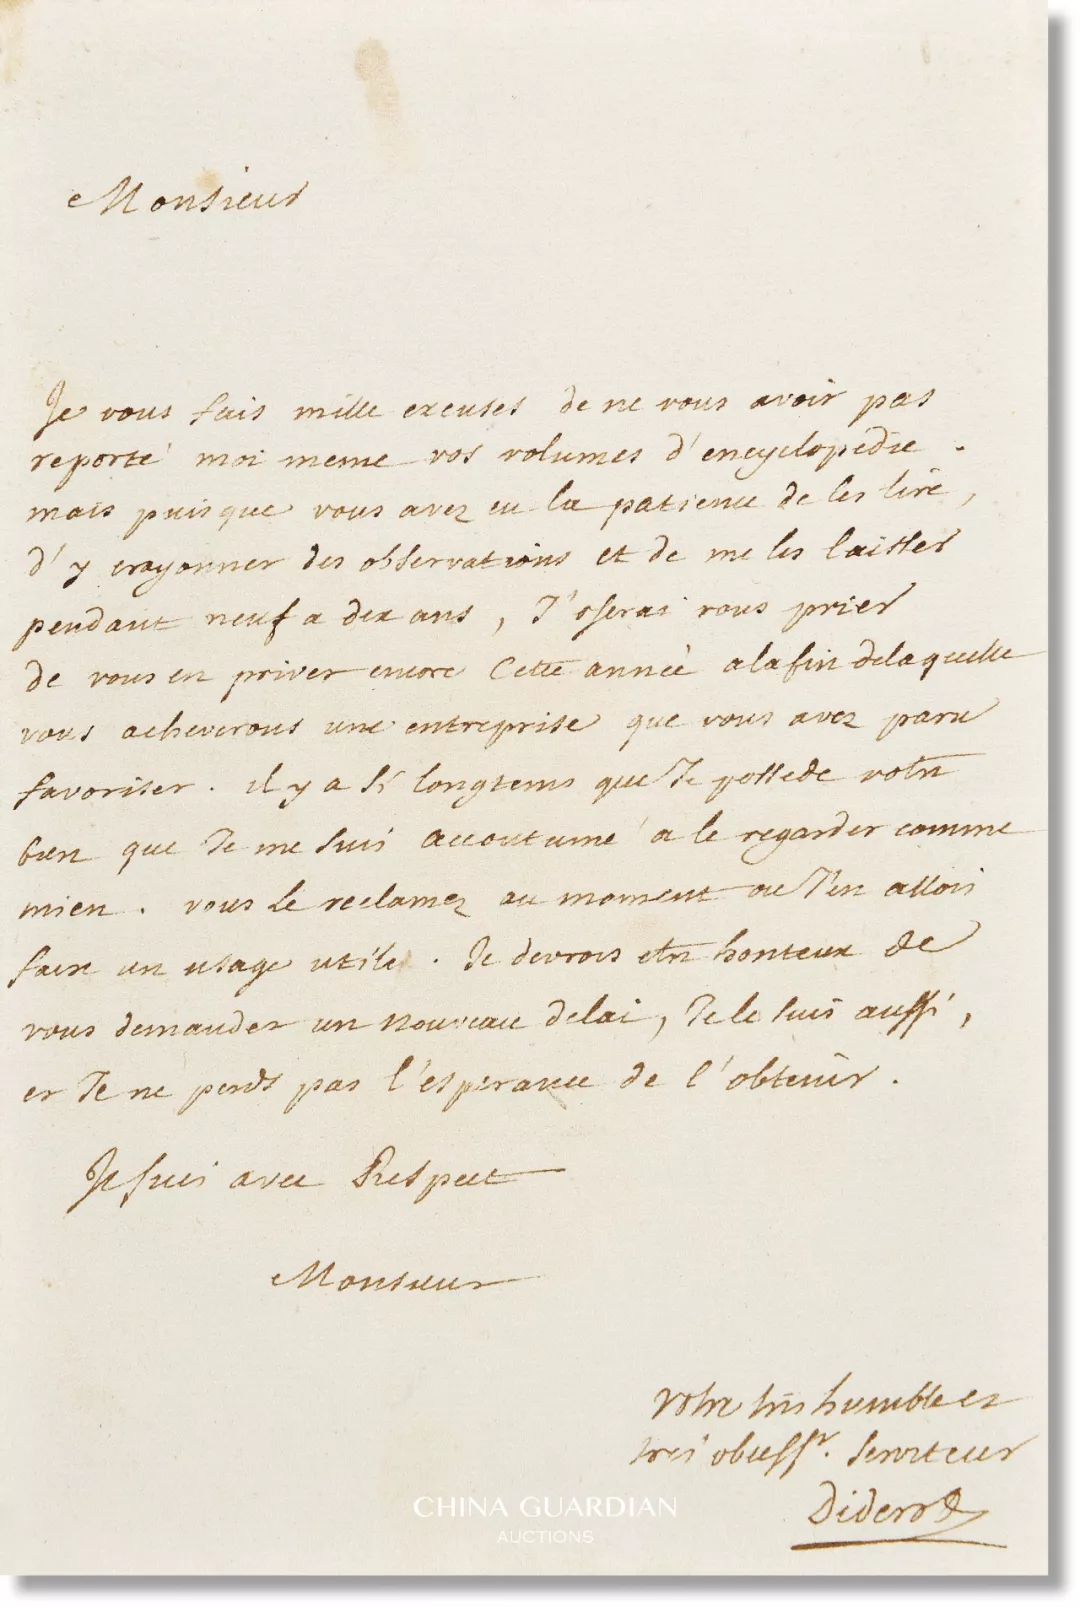 Monsieur
Je vous fais mille excuses de ne vous avoir pas
reporté moi meme vos volumes d'encyclopédie.
mais puisque vous avez eu la patience de les lire,
d'y crayonner des observations et de me les laisser
pendant neuf a dix ans, J'oserai vous prier
de vous en priver encore Cette année a la fin de laquelle
nous acheverons une entreprise que vous avez paru
favoriser. il y a si longtems que Je possede votre
bien que Je me suis accoutumé a le regarder comme
mien. vous le reclamez au moment ou J'en allois
faire un usage utile. Je devrois etre honteux de
vous demander un nouveau delai, Je le suis aussi,
et Je ne perds pas l'esperance de l'obtenir.
Je suis avec Respect
Monsieur
Votre tres humble et
tres obeisst. Serviteur
Diderot
CHINA GUARDIAN
AUCTIONS